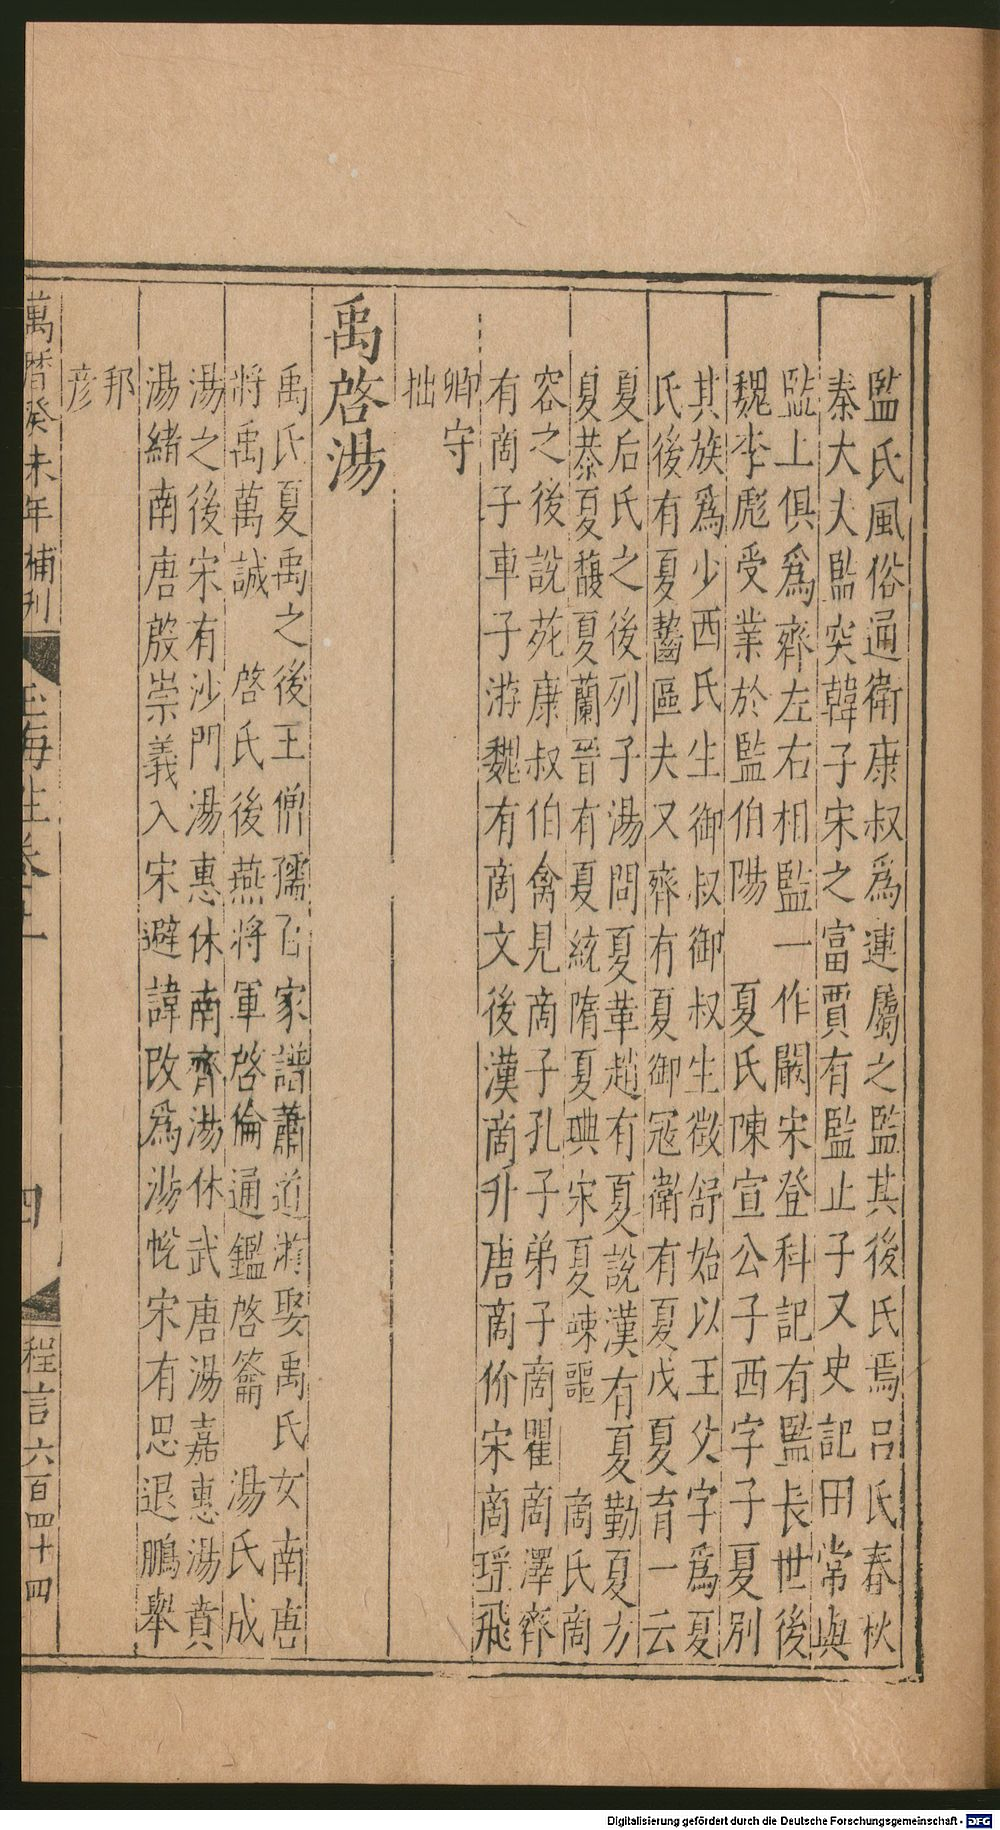 監氏風俗通衛康叔爲連屬之監其後氏焉呂氏春秋
秦大夫監突韓子宋之富賈有監止子又史記田常與
監上俱爲齊左右相監一作闞宋登科記有監長世後
魏李彪受業於監伯陽　夏氏陳宣公子西字子夏別
其族爲少西氏生御叔御叔生徵舒始以王父字爲夏
氏後有夏齧區夫又齊有夏御冦衛有夏戊夏育一云
夏后氏之後列子湯問夏革趙有夏說漢有夏勤夏方
夏恭夏馥夏蘭晉有夏統隋夏㻉宋夏竦謳　商氏商
容之後說苑康叔伯禽見商子孔子弟子商瞿商澤齊
有商子車子游魏有商文後漢商升唐商价宋商瑶飛
卿守
拙
禹啓湯
禹氏夏禹之後王僧孺百家譜蕭道游娶禹氏女南唐
將禹萬誠　啓氏後燕將軍啓倫通鑑啓籥　湯氏成
湯之後宋有沙門湯惠休南齊湯休武唐湯嘉惠湯賁
湯緒南唐殷崇義入宋避諱改爲湯悅宋有思退鵬舉
邦
彥
萬曆癸未年補刊
玉海生卷
四
程言六百四十四
Digitalisierung gefördert durch die Deutsche Forschungsgemeinschaft - DFG